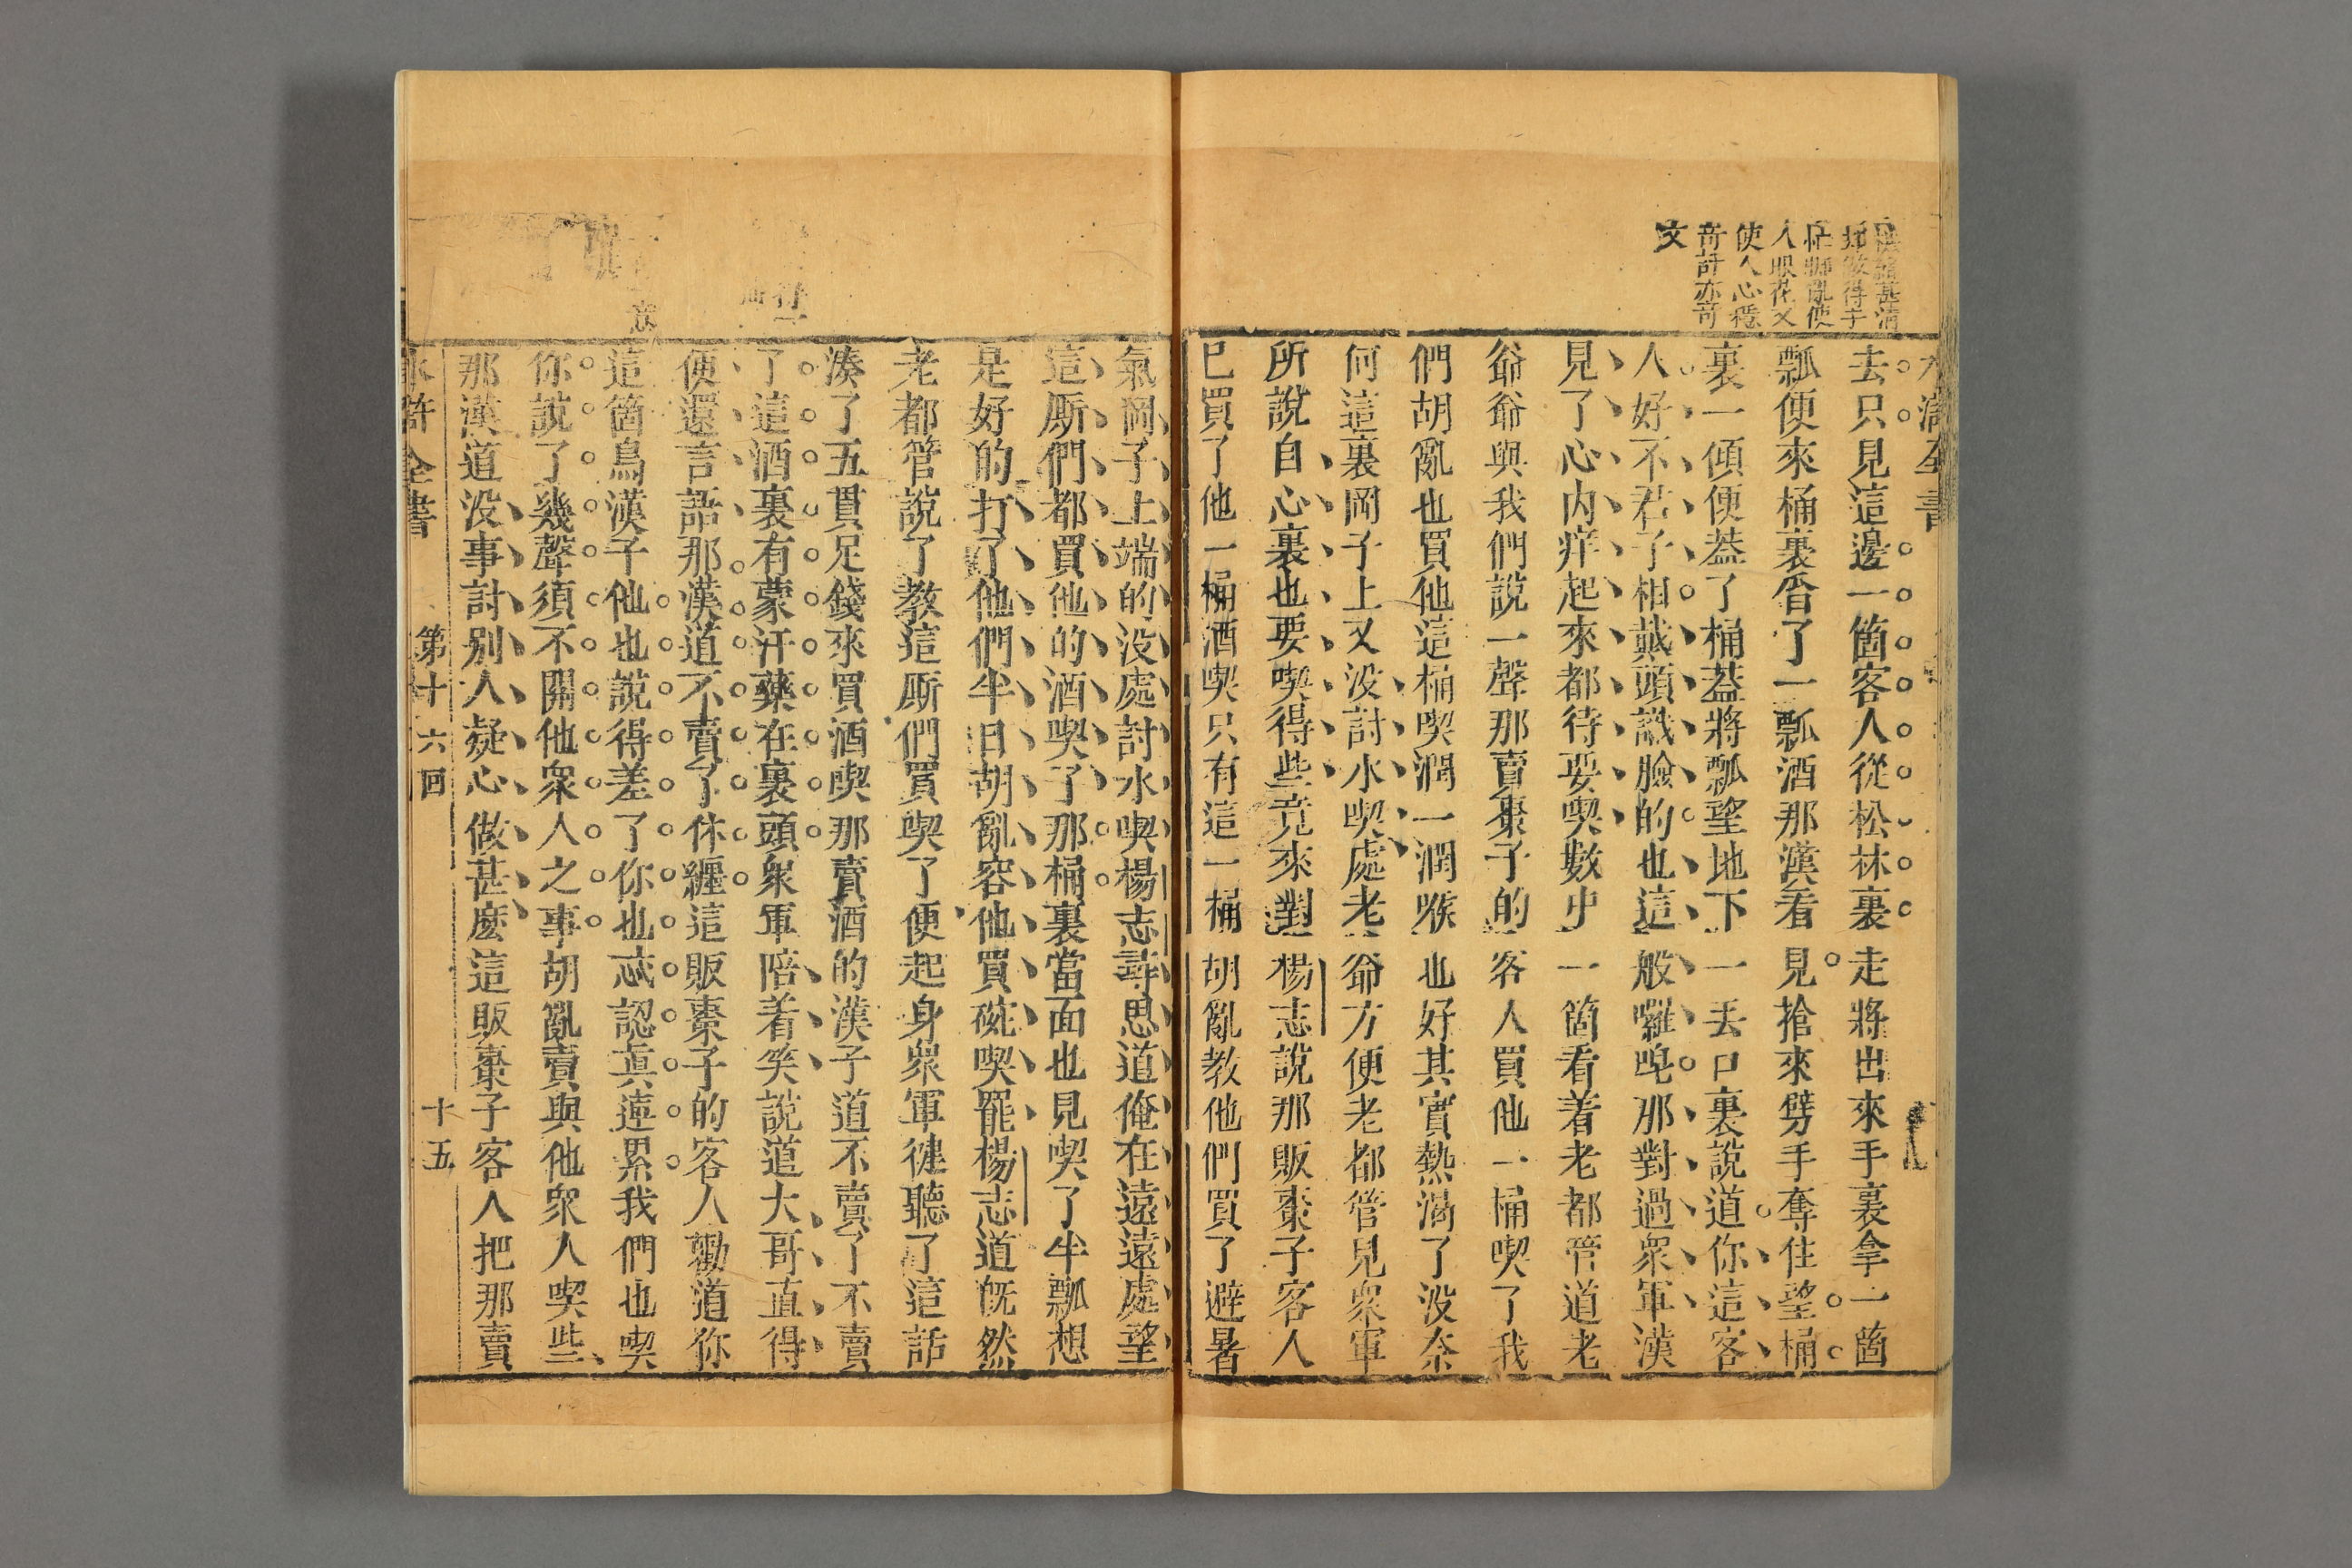 水滸全書
機緒甚清
描敘得手
忙腳亂使
人眼花又
使人心穩
奇計亦奇
文
去只見這邊一箇客人從松林裏走將出來手裏拿一箇
瓢便來桶裏舀了一瓢酒那漢看見搶來劈手奪住望桶
裏一傾便葢了桶葢將瓢望地下一丟口裏說道你這客
人好不君子相戴頭識臉的也這般囉唣那對過衆軍漢
見了心內痒起來都待要喫數中一箇看着老都管道老
爺爺與我們說一聲那賣棗子的客人買他一桶喫了我
們胡亂也買他這桶喫潤一潤喉也好其實熱渴了没奈
何這裏岡子上又没討水喫處老爺方便老都管見衆軍
所說自心裏也要喫得些竟來對楊志說那販棗子客人
已買了他一桶酒喫只有這一桶胡亂教他們買了避暑
氣岡子上端的没處討水喫楊志尋思道俺在遠遠處望
這厮們都買他的酒喫了那桶裏當面也見喫了半瓢想
是好的打了他們半日胡亂容他買碗喫罷楊志道旣然
老都管說了教這厮們買喫了便起身衆軍健聽了這話
湊了五貫足錢來買酒喫那賣酒的漢子道不賣了不賣
了這酒裏有蒙汗藥在裏頭衆軍陪着笑說道大哥直得
便還言語那漢道不賣了休纏這販棗子的客人勸道你
這箇鳥漢子他也說得差了你也忒認眞連累我們也喫
你說了幾聲須不關他衆人之事胡亂賣與他衆人喫些
那漢道没事討別人疑心做甚麽這販棗子客人把那賣
水滸全書　第十六回　十五